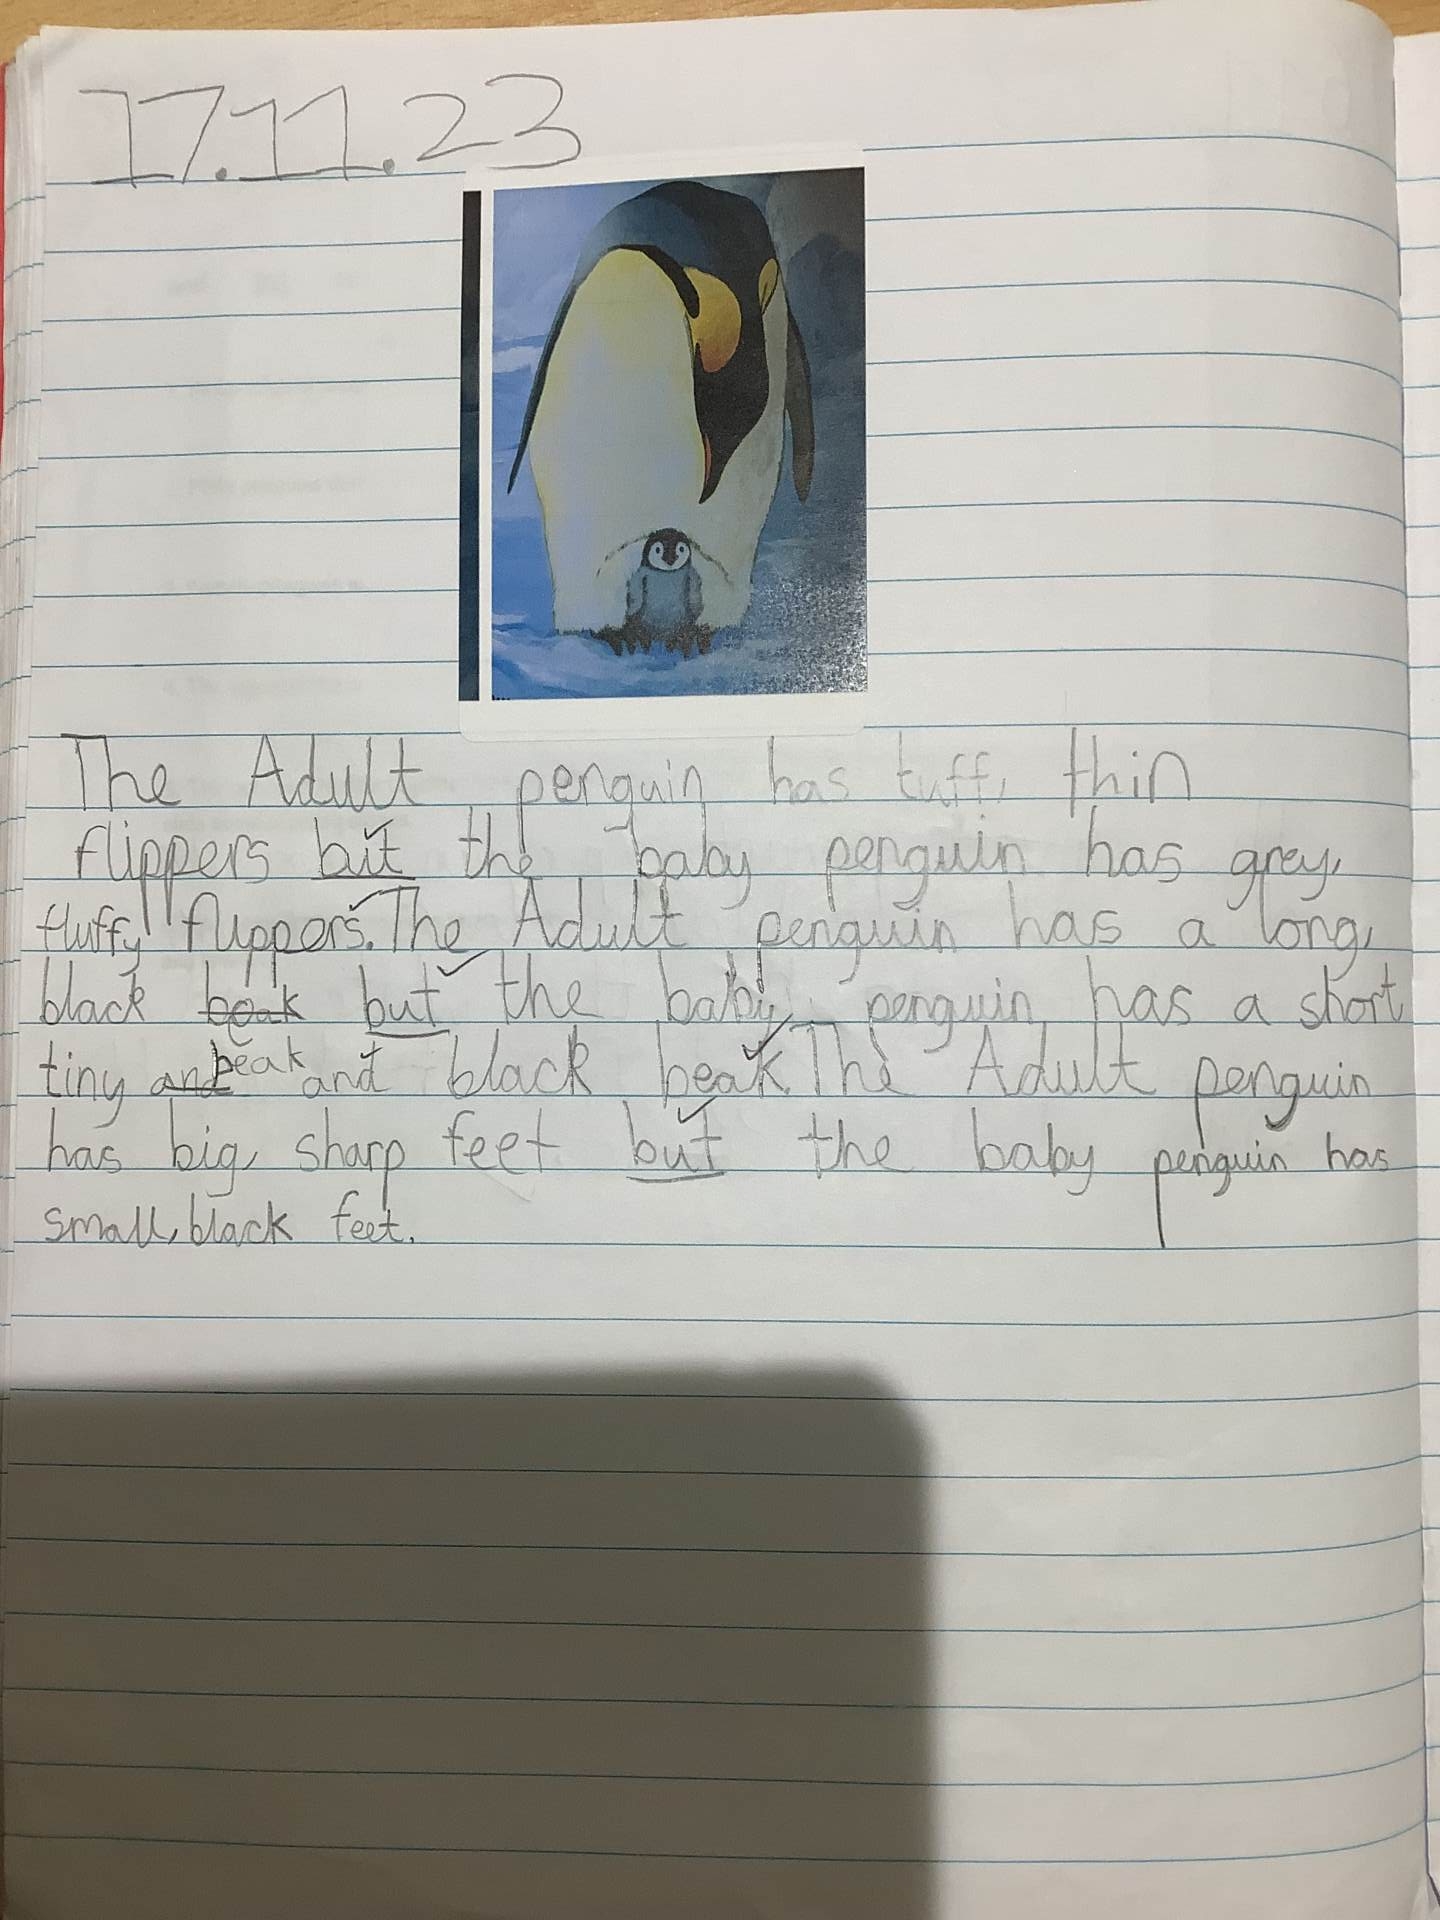 17.11.23
The Adult penguin has tuff, thin
flippers but the baby penguin has grey,
fluffy flippers. The Adult penguin has a long,
black beak but the baby penguin has a short
tiny and beak and black beak. The Adult penguin
has big, sharp feet but the baby penguin has
small, black feet.